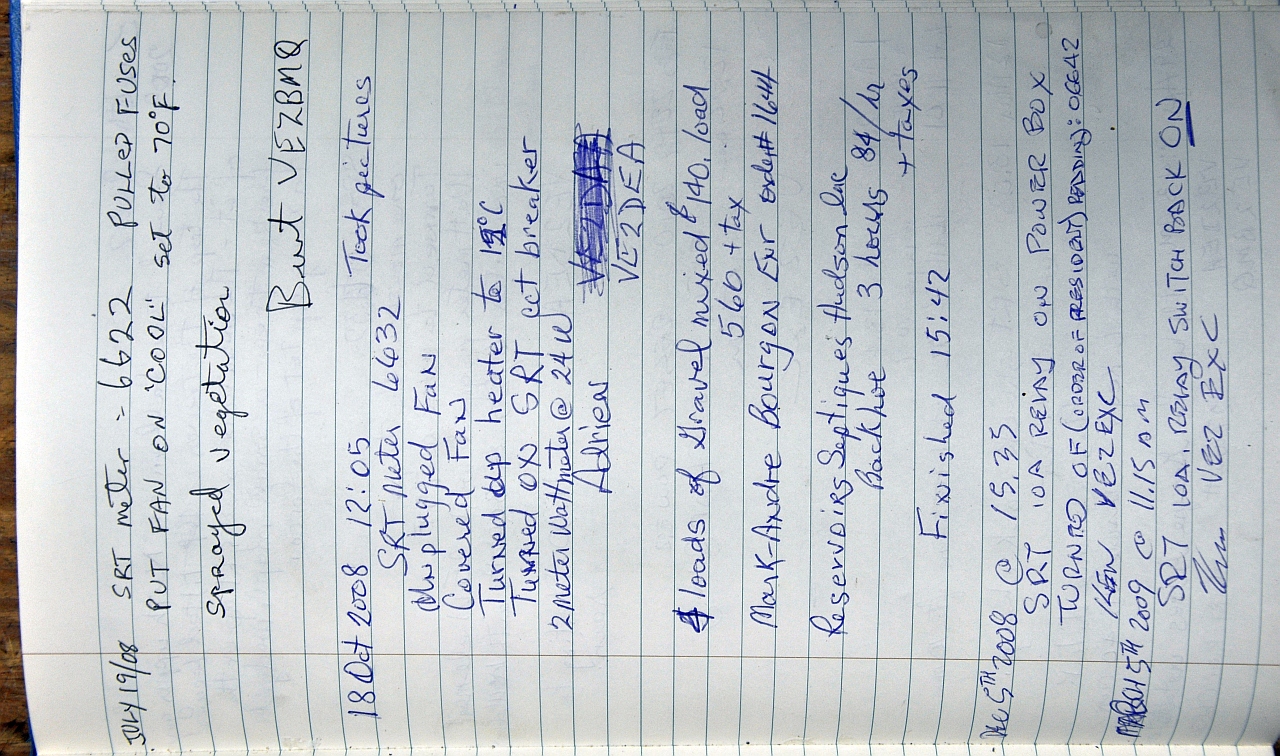 JULY 19/08 SRT meter - 6622 PULLED FUSES
PUT FAN ON "COOL" set to 70°F.
sprayed vegetation
Burt VE2BMQ
18 Oct 2008 12:05 Took pictures
SRT Meter 6632
Unplugged Fan
Covered Fan
Turned up heater to °C
Turned ON SRT cct breaker
2 meter Wattmeter @ 24W
Adrien VE2DEA
loads of Gravel mixed $140. load
560 + tax
Mark-Andre Bourgon Exr order# 1644
Reservoirs Septiques Hudson Inc
Backhoe 3 hours 84/hr
+ taxes
Finished 15:42
Dec 5TH 2008 @ 15.35
SRT 10A RELAY ON POWER BOX
TURNED OF (ORDER OF PRESIDENT) READING: 06642
KEN VE2EXC
MARCH 5TH 2009 @ 11.15 AM
SRT 10A. RELAY SWITCH BACK ON
Ken VE2 EXC